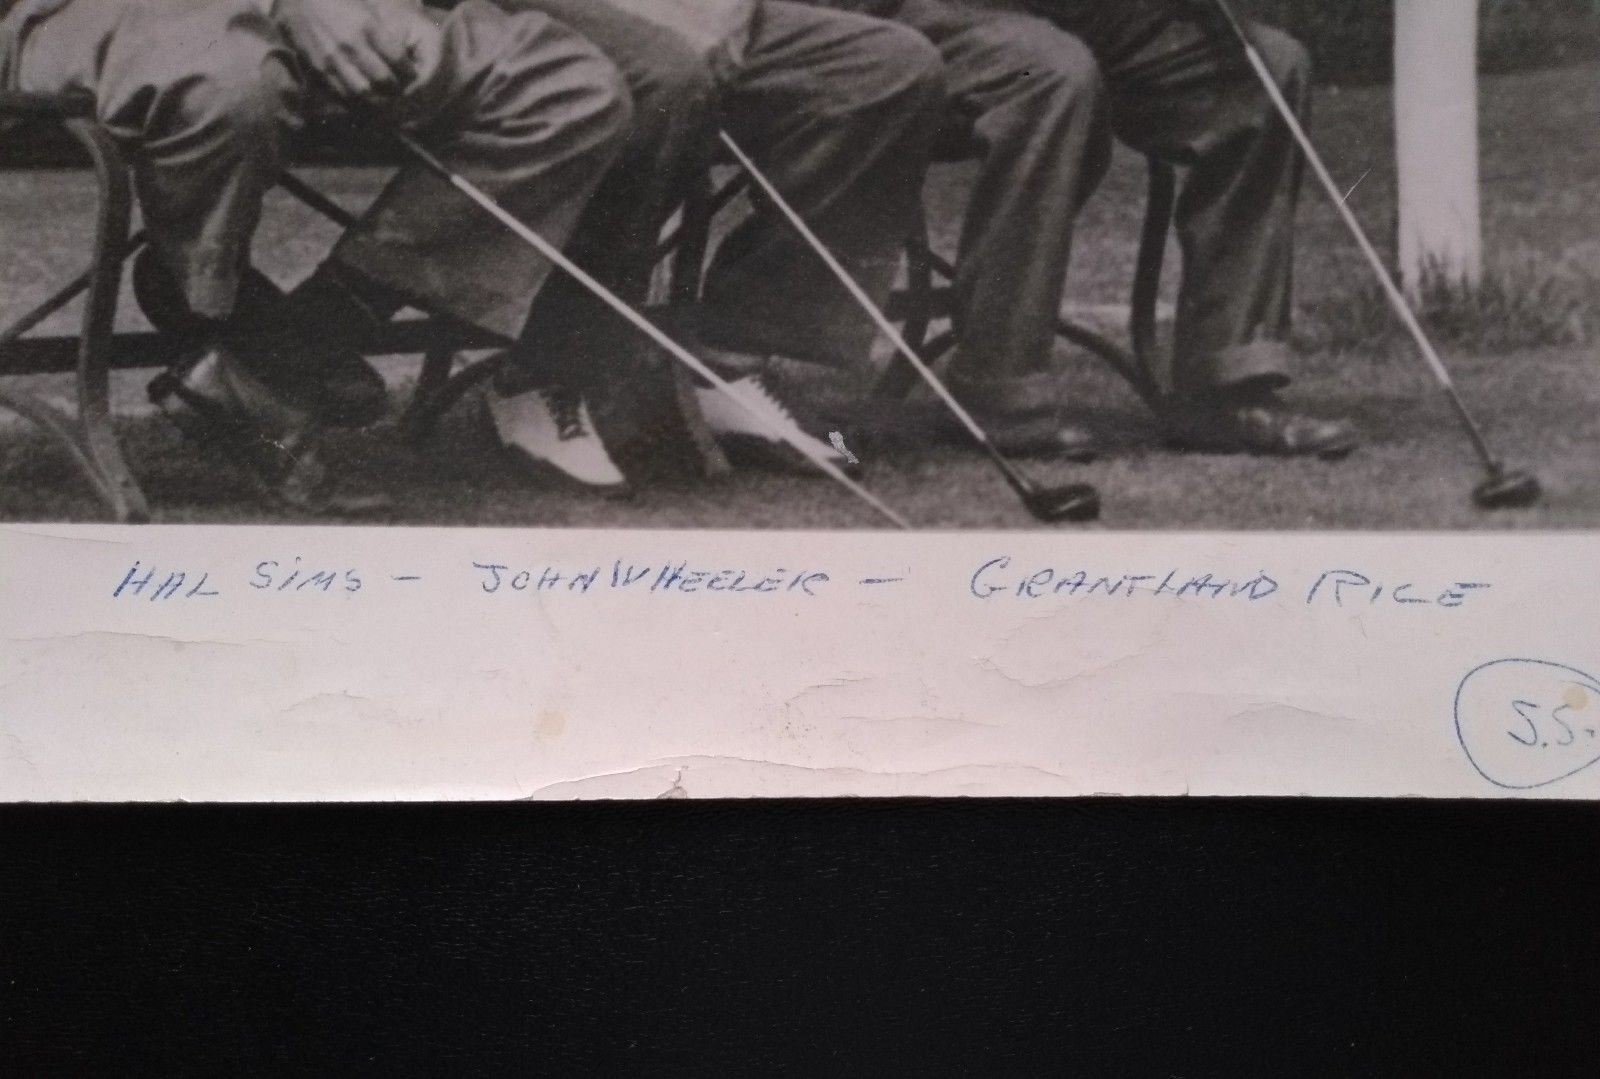 HAL SIMS - JOHN WHEELER - GRANTLAND RICE
S.S.